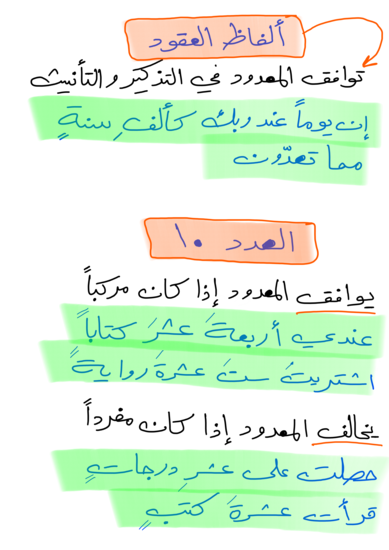 ألفاظ العقود
توافق المعدود في التذكير والتأنيث
إن يوماً عند ربك كألفِ سنةٍ
مما تعدّون
العدد ١٠
يوافق المعدود إذا كان مركباً
عندي أربعةَ عشرَ كتاباً
اشتريتُ ستَ عشرةَ روايةً
يخالف المعدود إذا كان مفرداً
حصلت على عشرِ درجاتٍ
قرأت عشرةَ كتبٍ